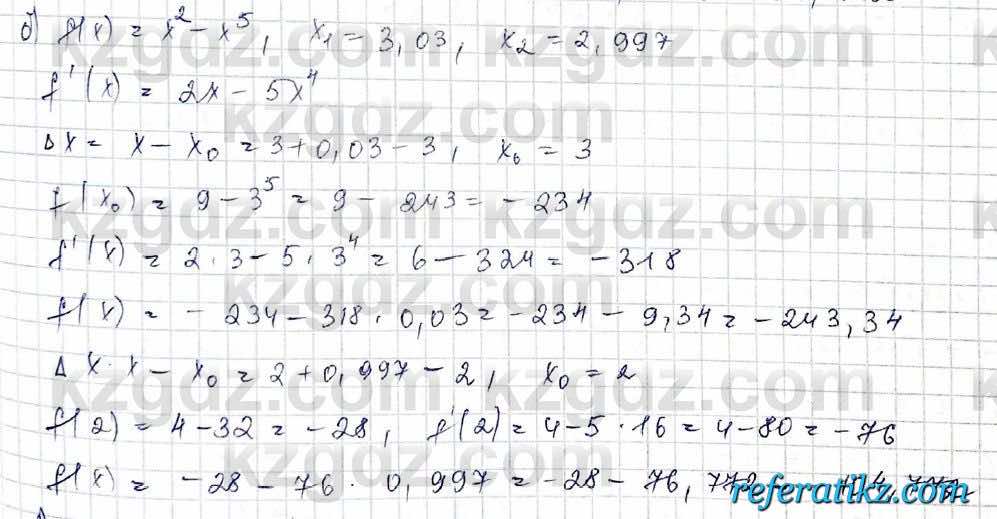 б) f(x) = x² - x⁵, x₁ = 3,03, x₂ = 2,997
f'(x) = 2x - 5x⁴
Δx = x - x₀ = 3+0,03-3, x₀ = 3
f(x₀) = 9 - 3⁵ = 9 - 243 = -234
f'(x) = 2·3 - 5·3⁴ = 6 - 324 = -318
f(x) = -234 - 318·0,03 = -234 - 9,34 = -243,34
Δ x·x - x₀ = 2+0,997-2, x₀ = 2
f(2) = 4-32 = -28, f'(2) = 4-5·16 = 4-80 = -76
f(x) = -28 - 76·0,997 = -28 - 76,772
kzgdz.com
referatikz.com